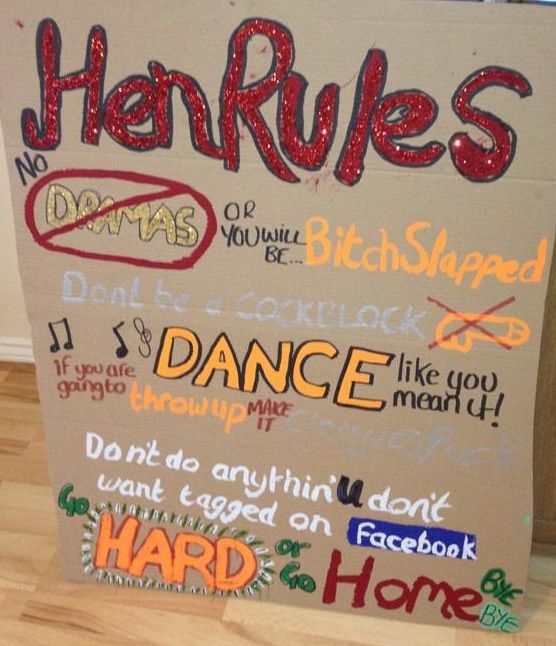 Hen Rules
NO DRAMAS OR YOU WILL BE... Bitch Slapped
Dont be a COCKBLOCK
DANCE like you mean it!
if you are going to throw up MAKE IT
Don't do anythin' U don't
want tagged on Facebook
Go HARD or Go Home BYE BYE